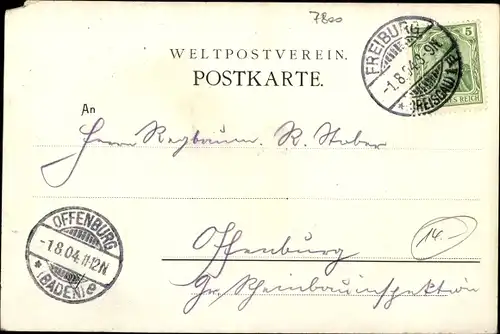 7800
WELTPOSTVEREIN.
POSTKARTE.
FREIBURG
-1.8.04.8-9N
* (BREISGAU) 1 B
5
S REICH
An
Herrn R. Stober
OFFENBURG
-1.8.04.11-12N
* (BADEN) e
Offenburg
14.-
Gr. Rheinbauinspektion